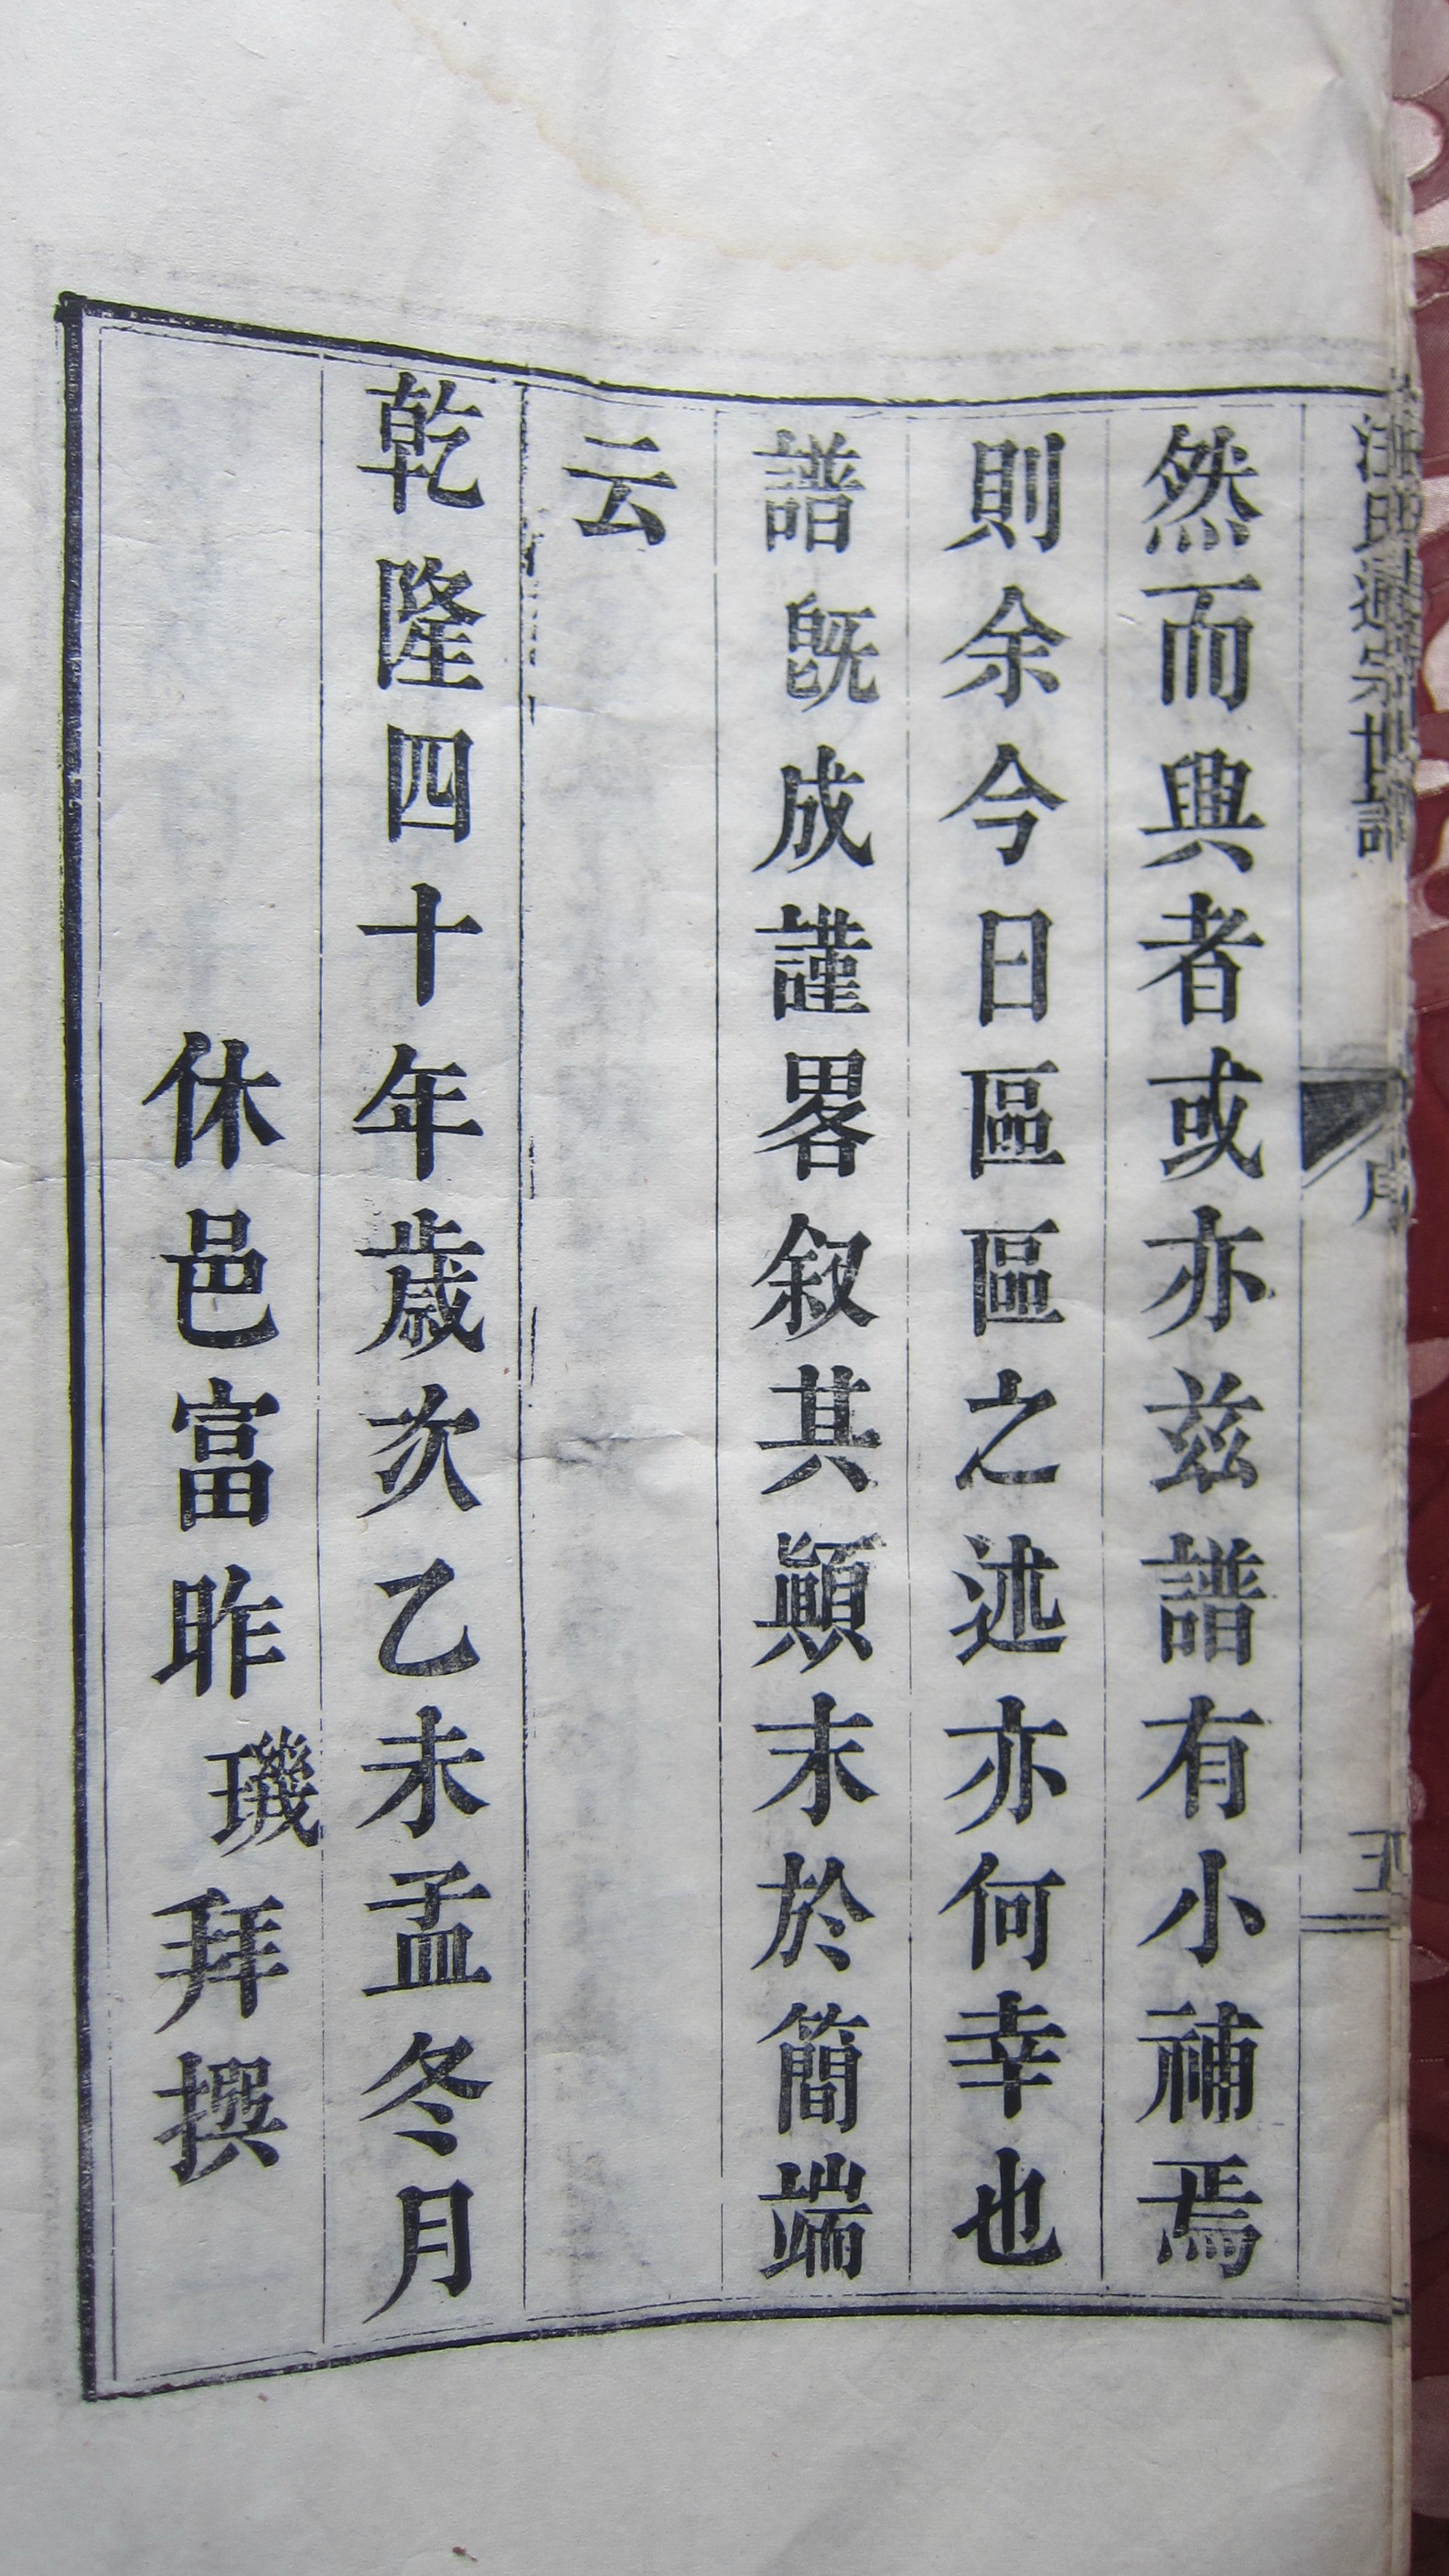 汪氏通宗世譜
序
五
然而興者或亦兹譜有小補焉
則余今日區區之述亦何幸也
譜旣成謹畧叙其顚末於簡端
云
乾隆四十年歲次乙未孟冬月
休邑富昨璣拜撰